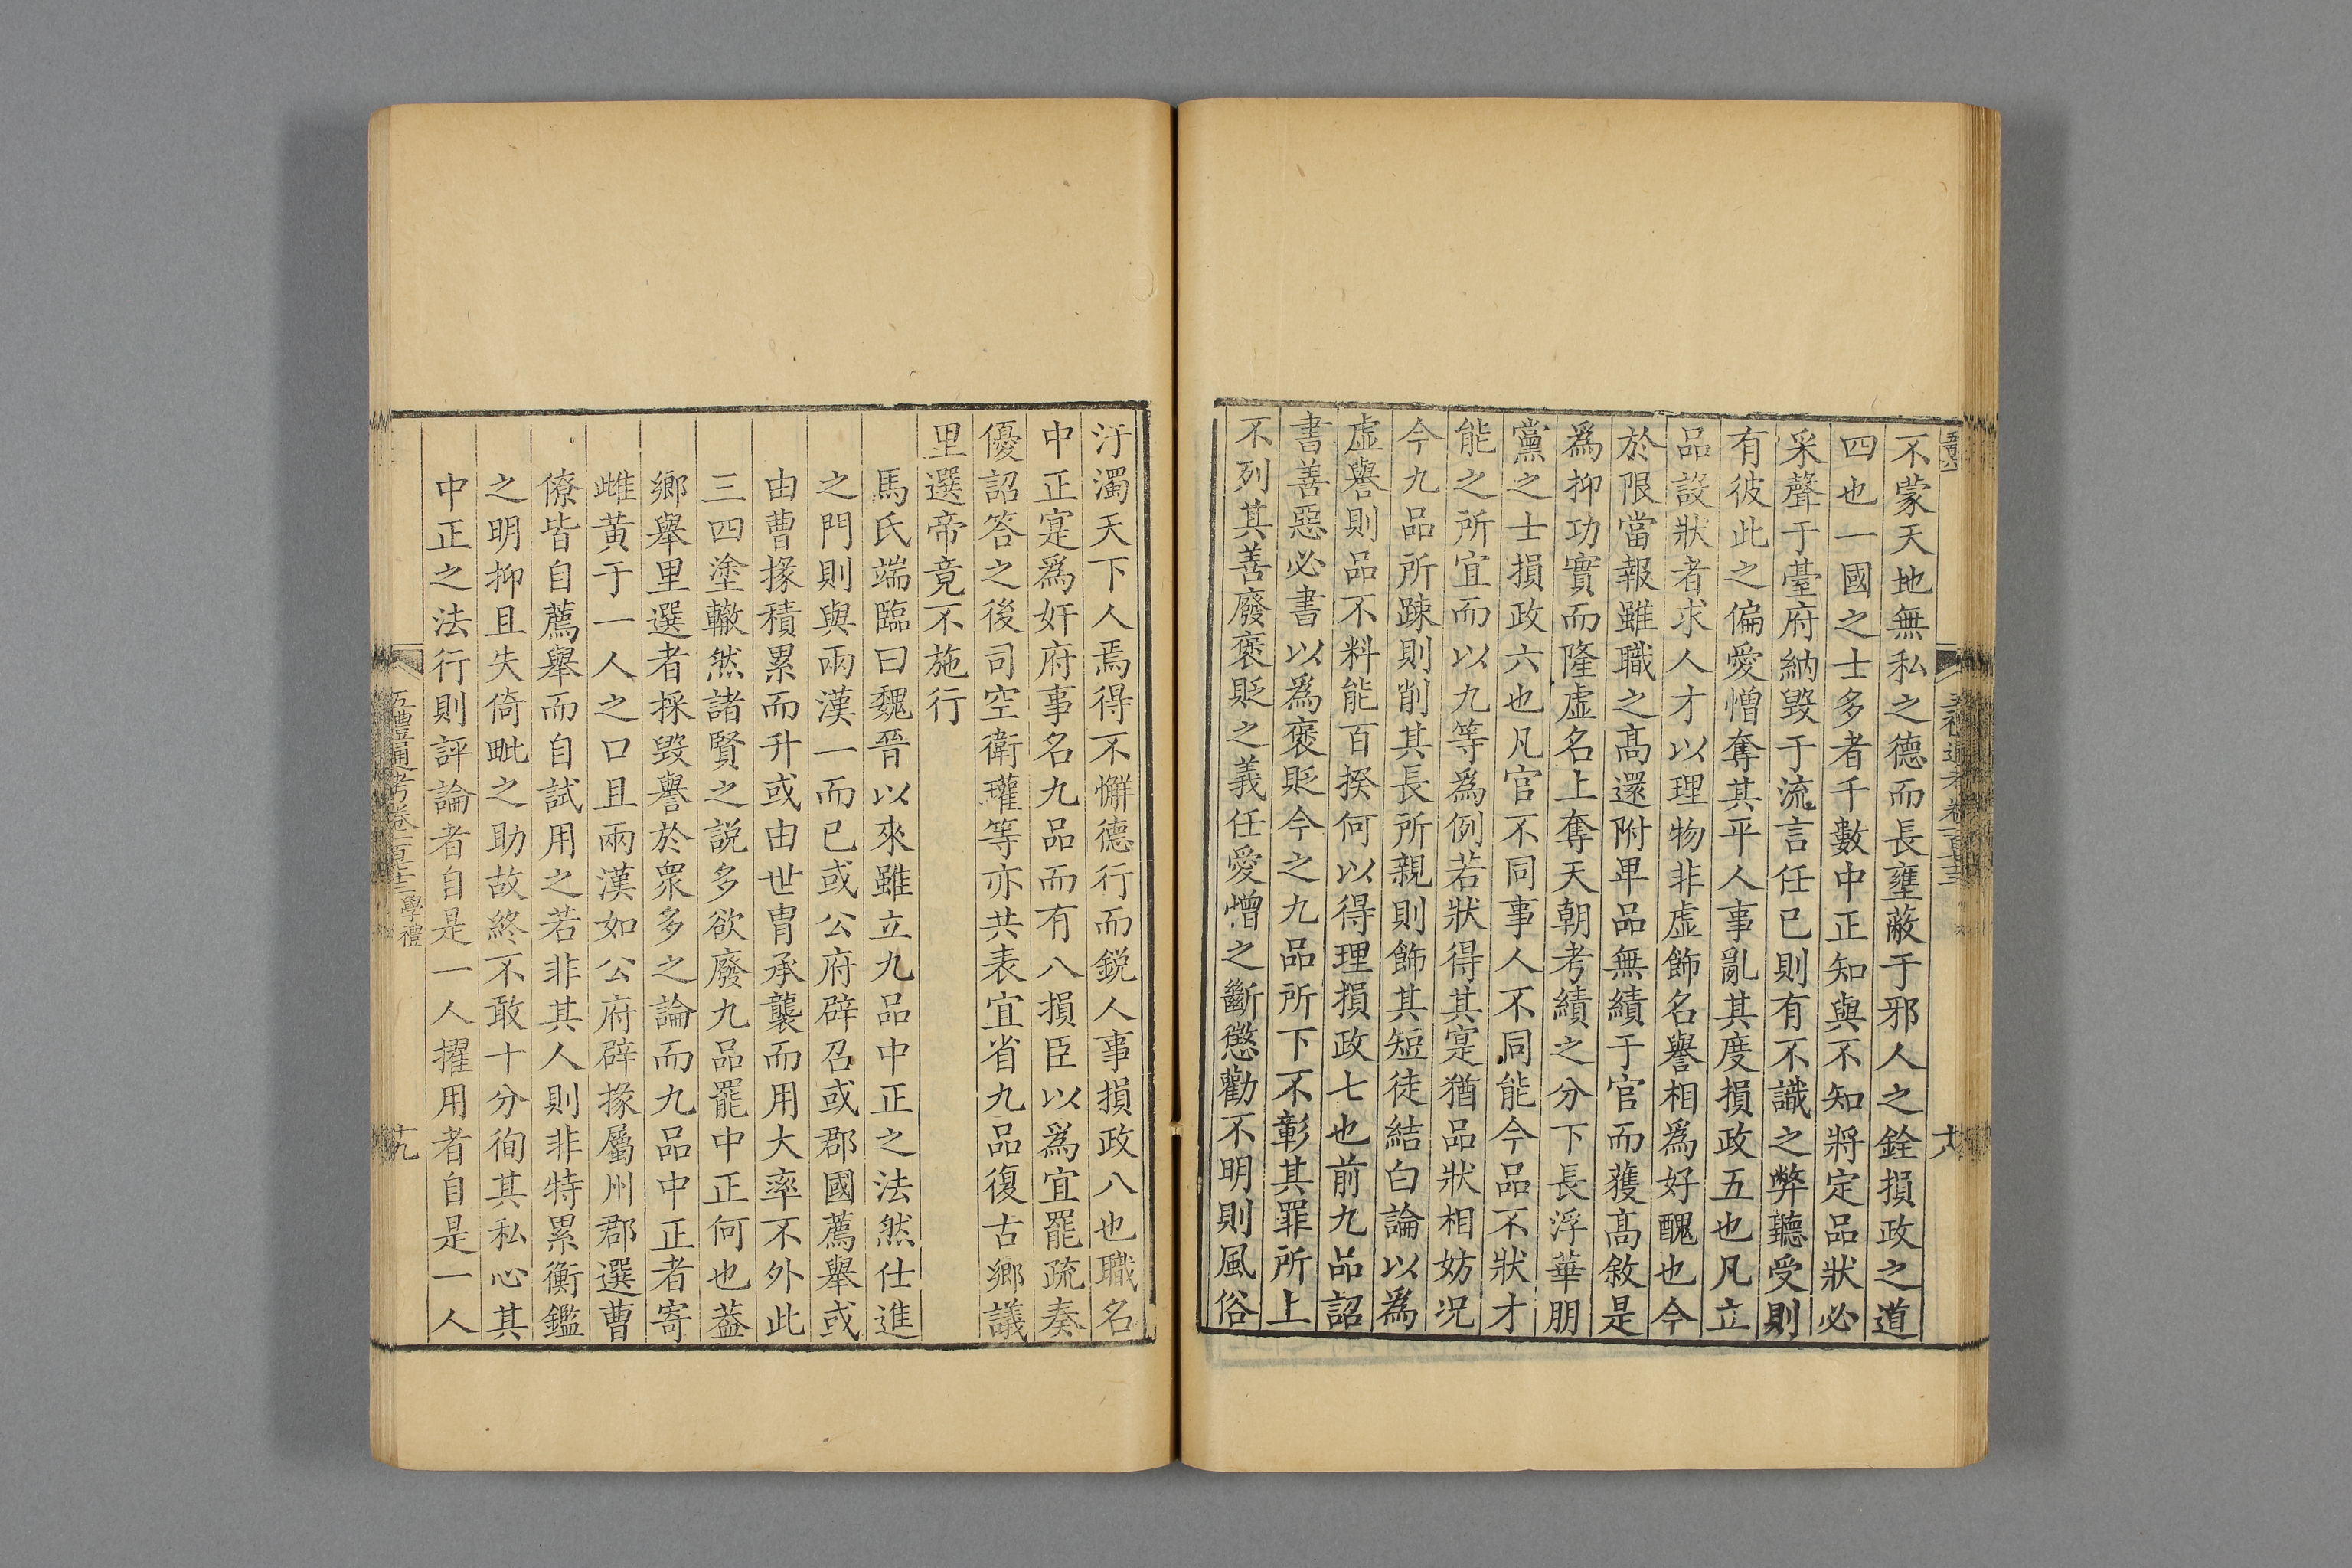 不蒙天地無私之德而長壅蔽于邪人之銓損政之道
四也一國之士多者千數中正知與不知將定品狀必
采聲于臺府納毀于流言任已則有不識之弊聽受則
有彼此之偏愛憎奪其平人事亂其度損政五也凡立
品設狀者求人才以理物非虛飾名譽相爲好醜也今
於限當報雖職之高還附卑品無績于官而獲高敘是
爲抑功實而隆虛名上奪天朝考績之分下長浮華朋
黨之士損政六也凡官不同事人不同能今品不狀才
能之所宜而以九等爲例若狀得其寔猶品狀相妨况
今九品所踈則削其長所親則飾其短徒結白論以爲
虛譽則品不料能百揆何以得理損政七也前九品詔
書善惡必書以爲褒貶今之九品所下不彰其罪所上
不列其善廢褒貶之義任愛憎之斷懲勸不明則風俗
汙濁天下人焉得不懈德行而銳人事損政八也職名
中正寔爲奸府事名九品而有八損臣以爲宜罷疏奏
優詔答之後司空衛瓘等亦共表宜省九品復古鄉議
里選帝竟不施行
馬氏端臨曰魏晉以來雖立九品中正之法然仕進
之門則與兩漢一而已或公府辟召或郡國薦舉或
由曹掾積累而升或由世胄承襲而用大率不外此
三四塗轍然諸賢之説多欲廢九品罷中正何也葢
鄉舉里選者採毀譽於衆多之論而九品中正者寄
雌黃于一人之口且兩漢如公府辟掾屬州郡選曹
僚皆自薦舉而自試用之若非其人則非特累衡鑑
之明抑且失倚毗之助故終不敢十分徇其私心其
中正之法行則評論者自是一人擢用者自是一人
五禮通考卷一百七十三 學禮
十九